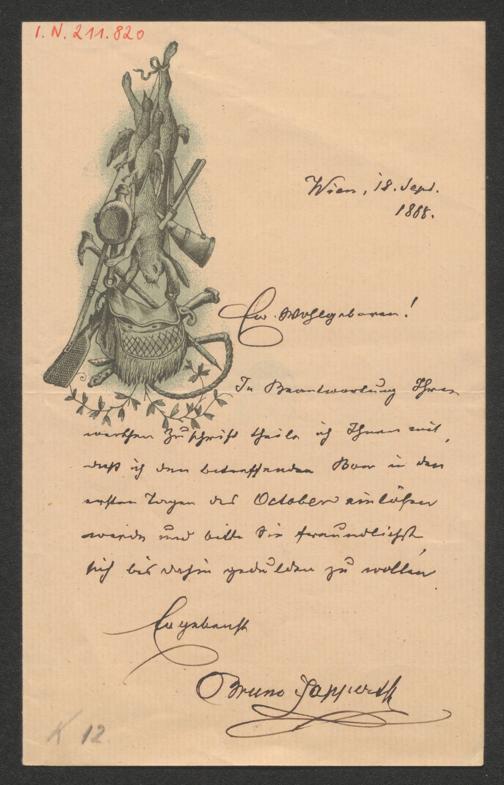 I. N. 211.820
Wien, 18. Sept.
1888.
Ew. Wohlgeboren!
In Beantwortung Ihrer
werthen Zuschrift theile ich Ihnen mit,
daß ich den betreffenden Bon in den
ersten Tagen des October einlösen
werde und bitte Sie freundlichst
sich bis dahin gedulden zu wollen.
Ergebenst
Bruno
K 12